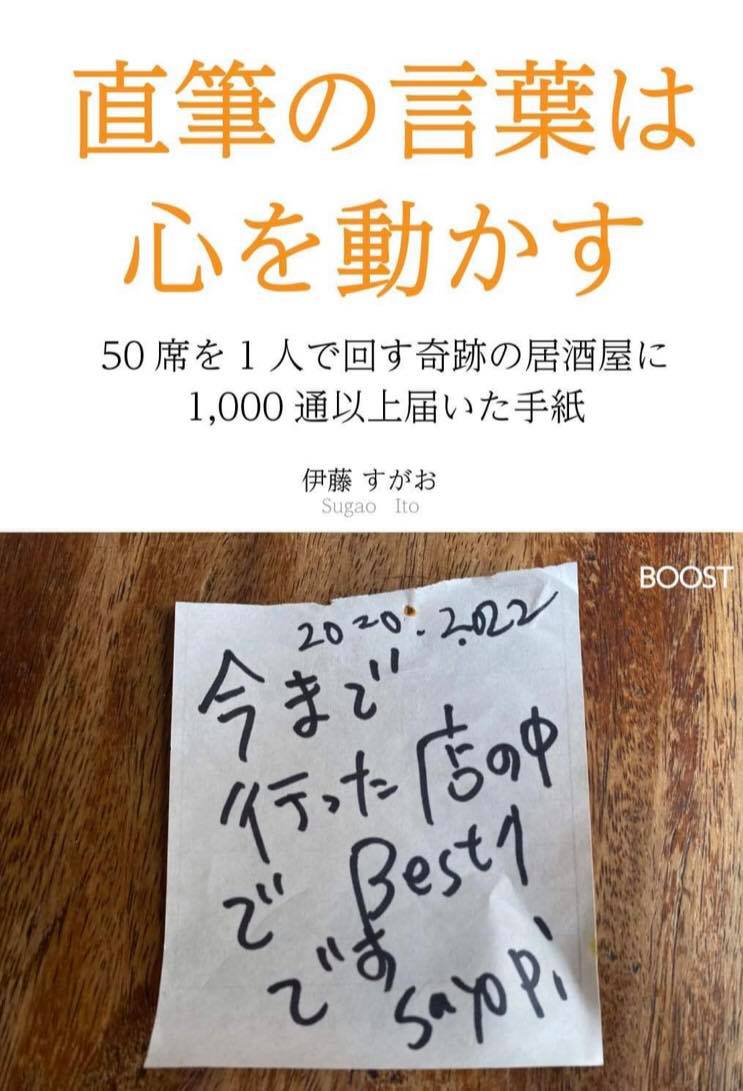 直筆の言葉は
心を動かす
50席を1人で回す奇跡の居酒屋に
1,000通以上届いた手紙
伊藤 すがお
Sugao Ito
BOOST
2020.2.022
今まで
行った店の中
で Best1
です
sayopi